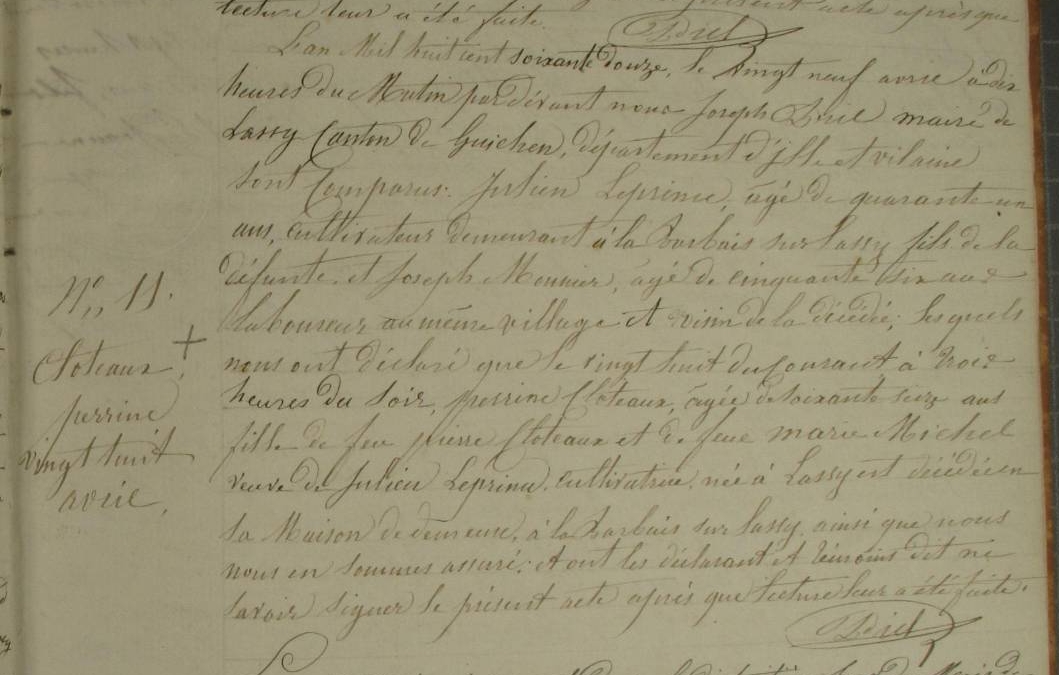 lecture leur a été faite.
présent acte après que
L'an Mil huit cent soixante douze, le vingt neuf avril à dix
heures du Matin par dévant nous Joseph maire de
Lassy Canton de Guichen, département d'ille et vilaine
sont Comparus: Julien Leprince, âgé de quarante un
ans, cultivateur demeurant à la Barbais sur Lassy fils de la
défunte. et Joseph Monnier, agé de cinquante six ans
Laboureur au même village et voisin de la décédée; Lesquels
nous ont déclaré que le vingt huit du courant à trois
heures du soir, perrine Cloteaux, âgée de soixante seize ans
fille de feu pierre Cloteaux et de feue marie Michel
veuve de Julien Leprince, cultivatrice, née à Lassy est décédée en
sa Maison de demeure, à la Barbais sur Lassy, ainsi que nous
nous en sommes assuré; et ont les déclarant et témoins dit ne
savoir signer le présent acte après que lecture leur a été faite.
N° 11.
Cloteaux,
perrine
vingt huit
avril,